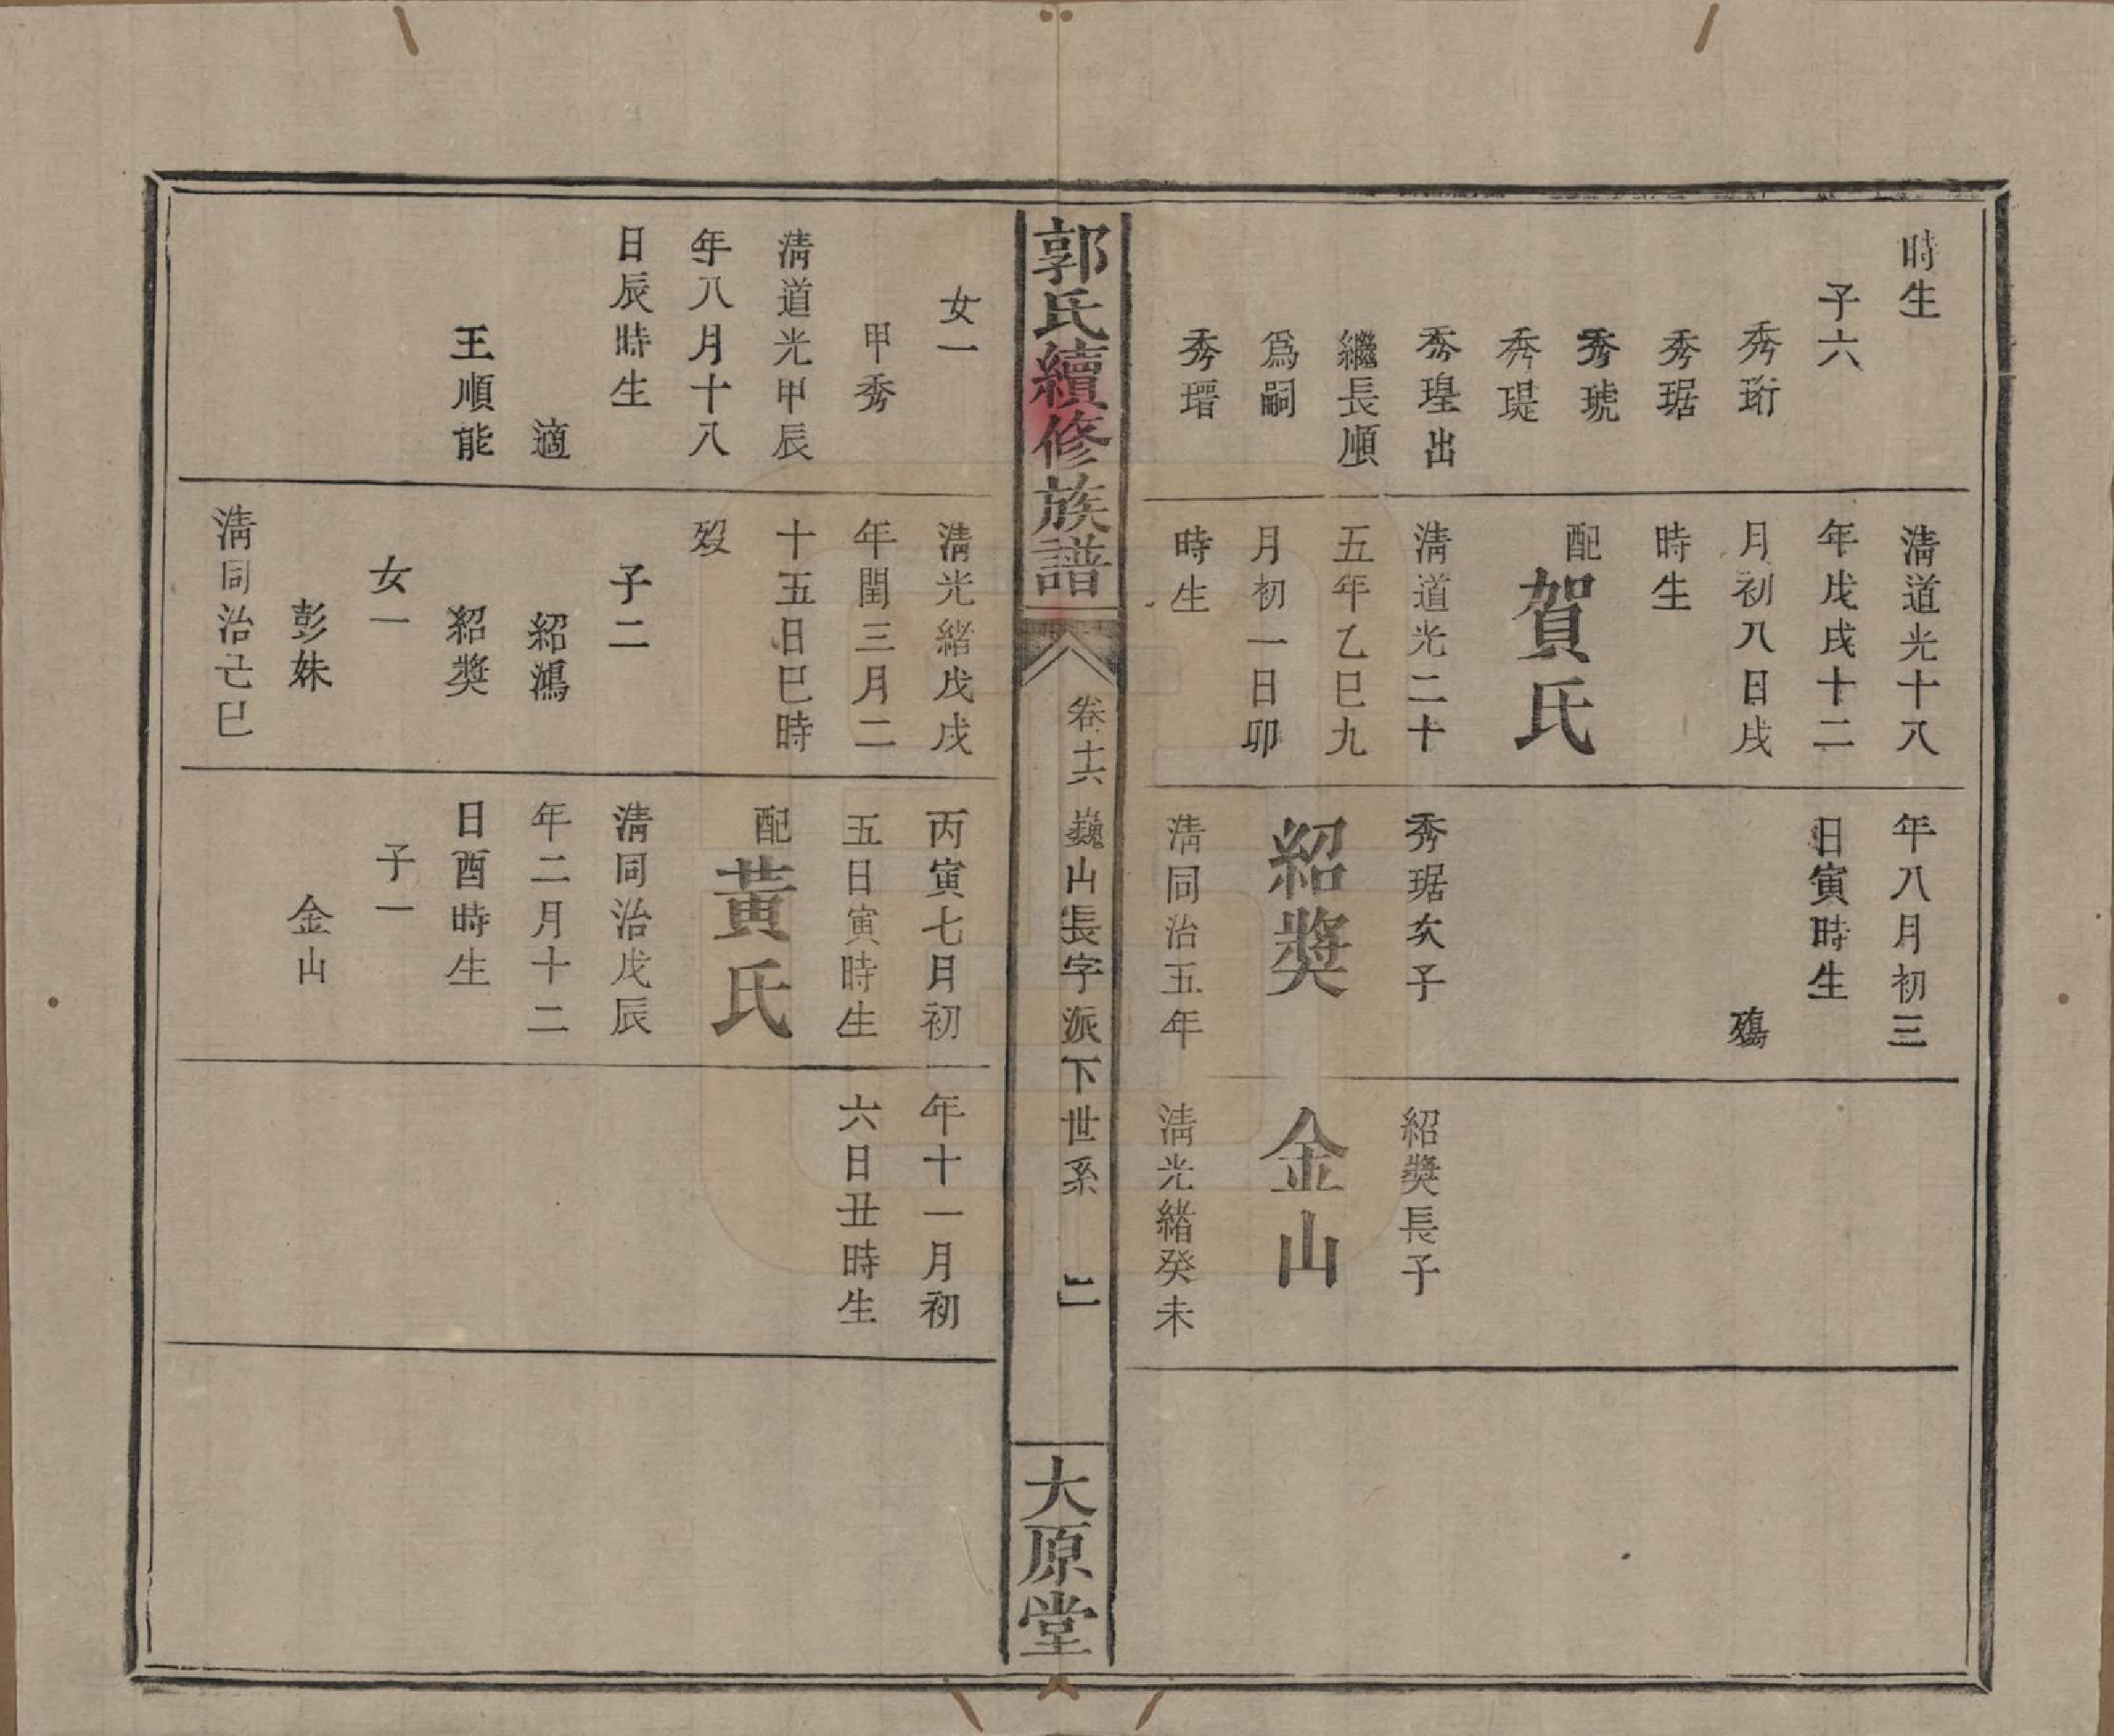 時生
子六
秀珩
秀琚
秀琥
秀瑅
秀瑝出
繼長順
爲嗣
秀瑨
清道光十八
年戊戌十二
月初八日戌
時生
配賀氏
清道光二十
五年乙巳九
月初一日卯
時生
年八月初三
日寅時生
殤
秀琚次子
紹獎
清同治五年
紹獎長子
金山
清光緒癸未
郭氏續修族譜
卷十六
巍山長字派下世系
二
大原堂
女一
甲秀
清道光甲辰
年八月十八
日辰時生
適
王順能
清光緒戊戌
年閏三月二
十五日巳時
歿
子二
紹鴻
紹獎
女一
彭姝
清同治己巳
丙寅七月初
五日寅時生
配黃氏
清同治戊辰
年二月十二
日酉時生
子一
金山
年十一月初
六日丑時生